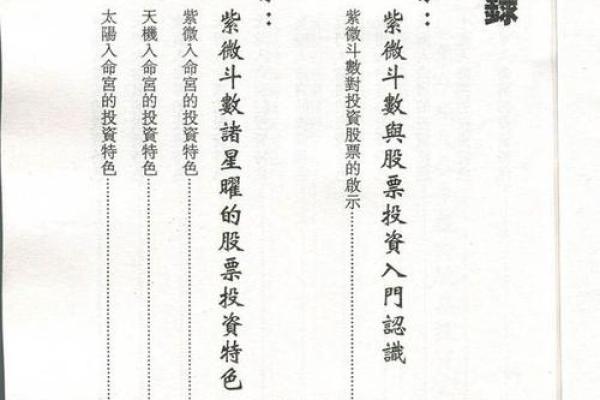 錄
紫微斗數與股票投資入門認識
紫微斗數對投資股票的啟示
紫微斗數諸星曜的股票投資特色
紫微入命宮的投資特色
天機入命宮的投資特色
太陽入命宮的投資特色